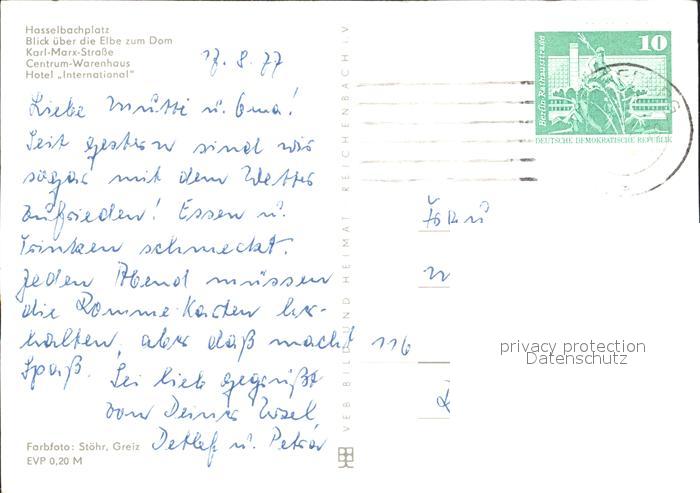 Hasselbachplatz
Blick über die Elbe zum Dom
Karl-Marx-Straße
Centrum-Warenhaus
Hotel „International"
17.8.77
Liebe Mutti u. Oma!
Seit gestern sind wir
sogar mit dem Wetter
zufrieden! Essen u.
Trinken schmeckt.
Jeden Abend müssen
die Romme-Karten her-
halten, aber daß macht
Spaß. Sei lieb gegrüßt
von Deiner Ursel
Detlef u. Petra
Farbfoto: Stöhr, Greiz
EVP 0,20 M
VEB BILD UND HEIMAT REICHENBACH i.V
10
Berlin-Rathausstraße
DEUTSCHE DEMOKRATISCHE REPUBLIK
116
privacy protection
Datenschutz